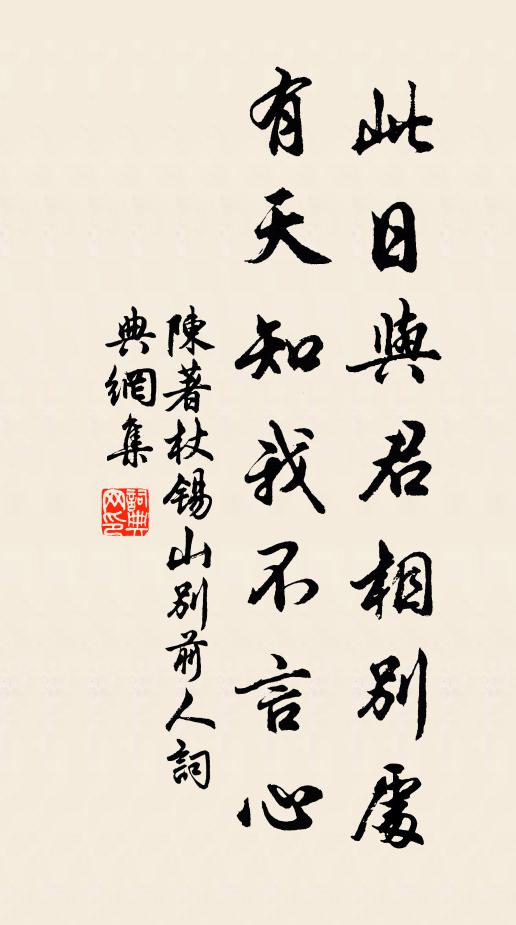 此日與君相別處
有天知我不言心
陳著杖錫山別前人詞
典網集
詞典
网印